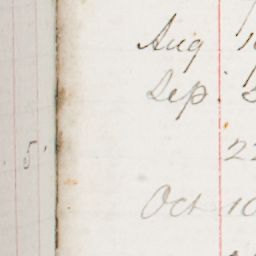 Aug 1
Sep.
5
22
Oct 10